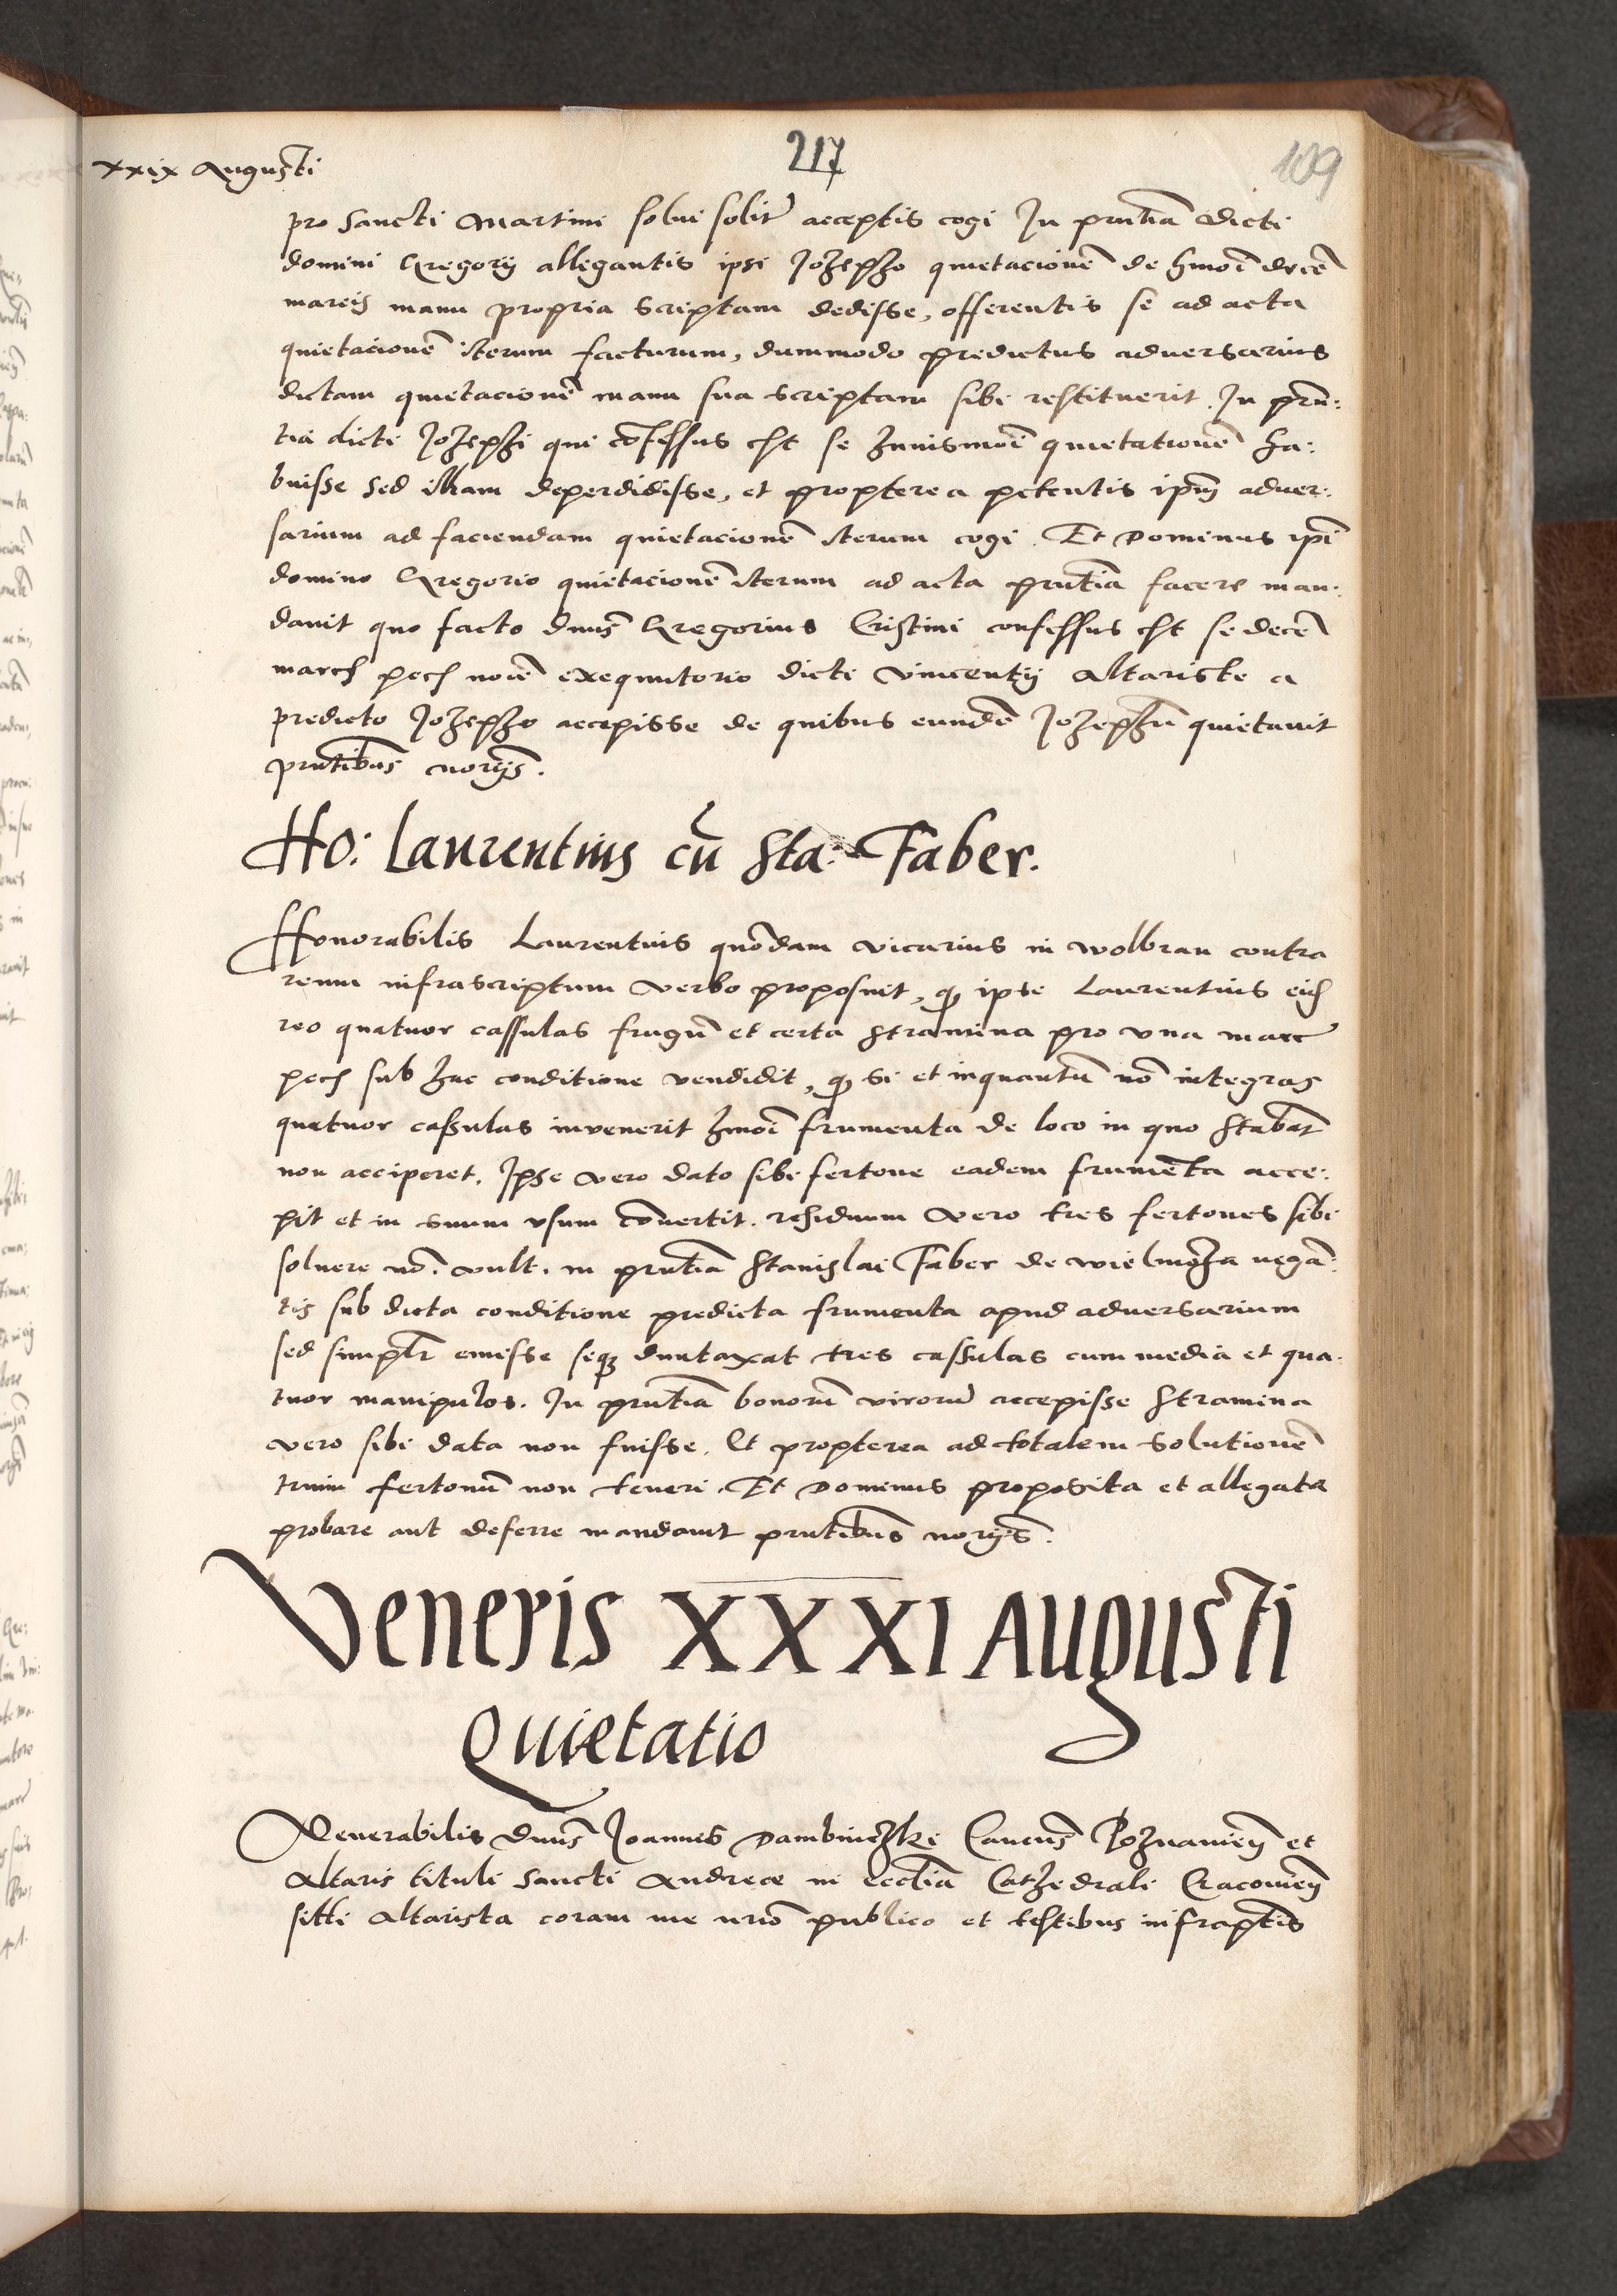 217
109
xxix Augusti
pro Sancti Martini solui solit acceptis cogi In pñtia dicti
domini Gregorij allegantis ipsi Jozepho quietacionē de hmoi decē
marcis manu propria scriptam dedisse, offerentis se ad acta
quietacionē iterum facturum, dummodo predictus adversarius
dictam quietacionē manu sua scriptam sibi restituerit. In prñ:
tia dicti Jozephi qui cōfessus est se huiusmōi quietationē ha:
buisse sed illam deperdidisse, et propterea petentis ipm̄ adver:
sarium ad faciendam quietacionē iterum cogi. Et Dominus ipī
domino Gregorio quietacionē iterum ad acta pñtia facere man:
dauit quo facto dnus Gregorius Cristini confessus est se decē
march pech noīe exequutorio dicti Vincentij Altariste a
predicto Jozepho accepisse de quibus eundē Jozephū quietauit
pñtibus norijs.
Ho: Laurentius cū Sta: Faber.
Honorabilis Laurentius quōdam vicarius in Wolbran contra
reum infrascriptum verbo proposuit, q ipse Laurentius eid
reo quatuor cassulas frugū et certa stramina pro vna marc
pech sub hac conditione vendidit, q si et inquantū nō integras
quatuor cassulas invenerit hmoi frumenta de loco in quo stabāt
non acciperet. Ipse vero dato sibi fertone eadem frumēta acce:
pit et in suum vsum cōuertit. residuum vero tres fertones sibi
soluere nō vult. in pñtia Stanislai Faber de Wielmoza negā:
tis sub dicta conditione predicta frumenta apud adversarium
sed simplr emisse seq duntaxat tres cassulas cum media et qua:
tuor manipulos. In pñtia bonorū virorū accepisse Stramina
vero sibi data non fuisse. Et propterea ad totalem solutionē
trium fertonū non teneri. Et Dominus proposita et allegata
probare aut deferre mandauit pñtibus norijs.
Veneris XXXI Augusti
Quietatio
Venerabilis dnus Joannes Dambinczki Cancus Poznanien et
Altaris tituli Sancti Andreae in ecclia Cathedrali Cracovien
siti Altarista coram me nrio publico et testibus infraptis